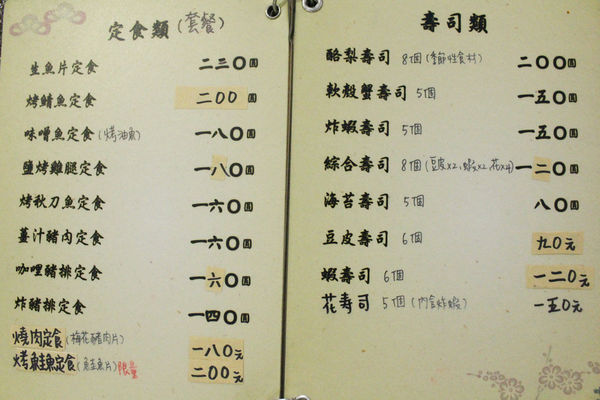 定食類(套餐)
生魚片定食 二三〇圓
烤鯖魚定食 二〇〇圓
味噌魚定食(烤油魚) 一八〇圓
鹽烤雞腿定食 一八〇圓
烤秋刀魚定食 一六〇圓
薑汁豬肉定食 一六〇圓
咖哩豬排定食 一六〇圓
炸豬排定食 一四〇圓
燒肉定食(梅花豬肉片) 一八〇元
烤鮭魚定食(鮭魚片)限量 二〇〇元
壽司類
酪梨壽司 8個(季節性食材) 二〇〇圓
軟殼蟹壽司 5個 一五〇圓
炸蝦壽司 5個 一五〇圓
綜合壽司 8個(豆皮x2,蝦x2,花x4) 一二〇圓
海苔壽司 5個 八〇圓
豆皮壽司 6個 九〇元
蝦壽司 6個 一二〇元
花寿司 5個(內含炸蝦) 一五〇元